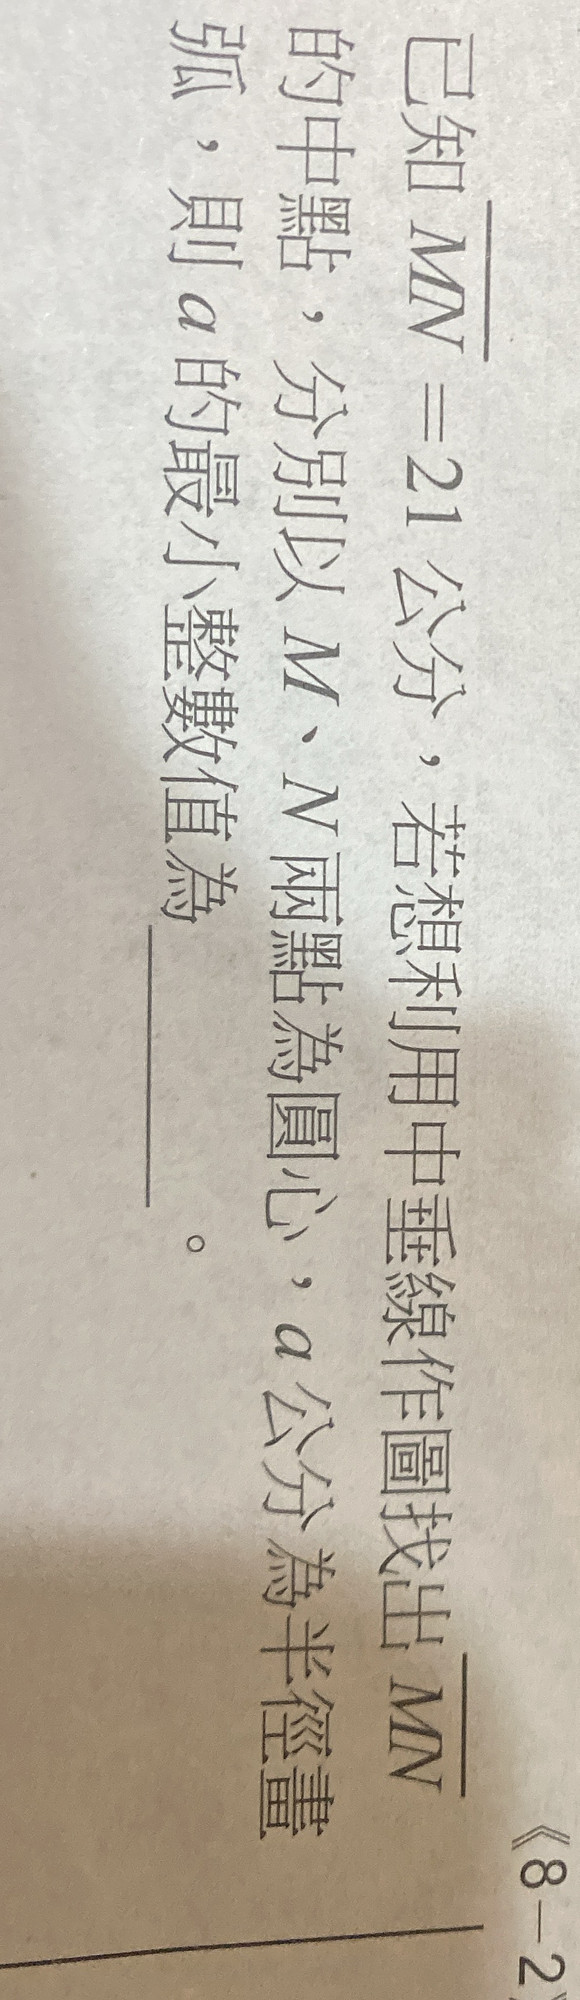 《8-2》
已知 MN =21 公分,若想利用中垂線作圖找出 MN
的中點,分別以 M、N 兩點為圓心,a 公分為半徑畫
弧,則 a 的最小整數值為＿＿＿＿。